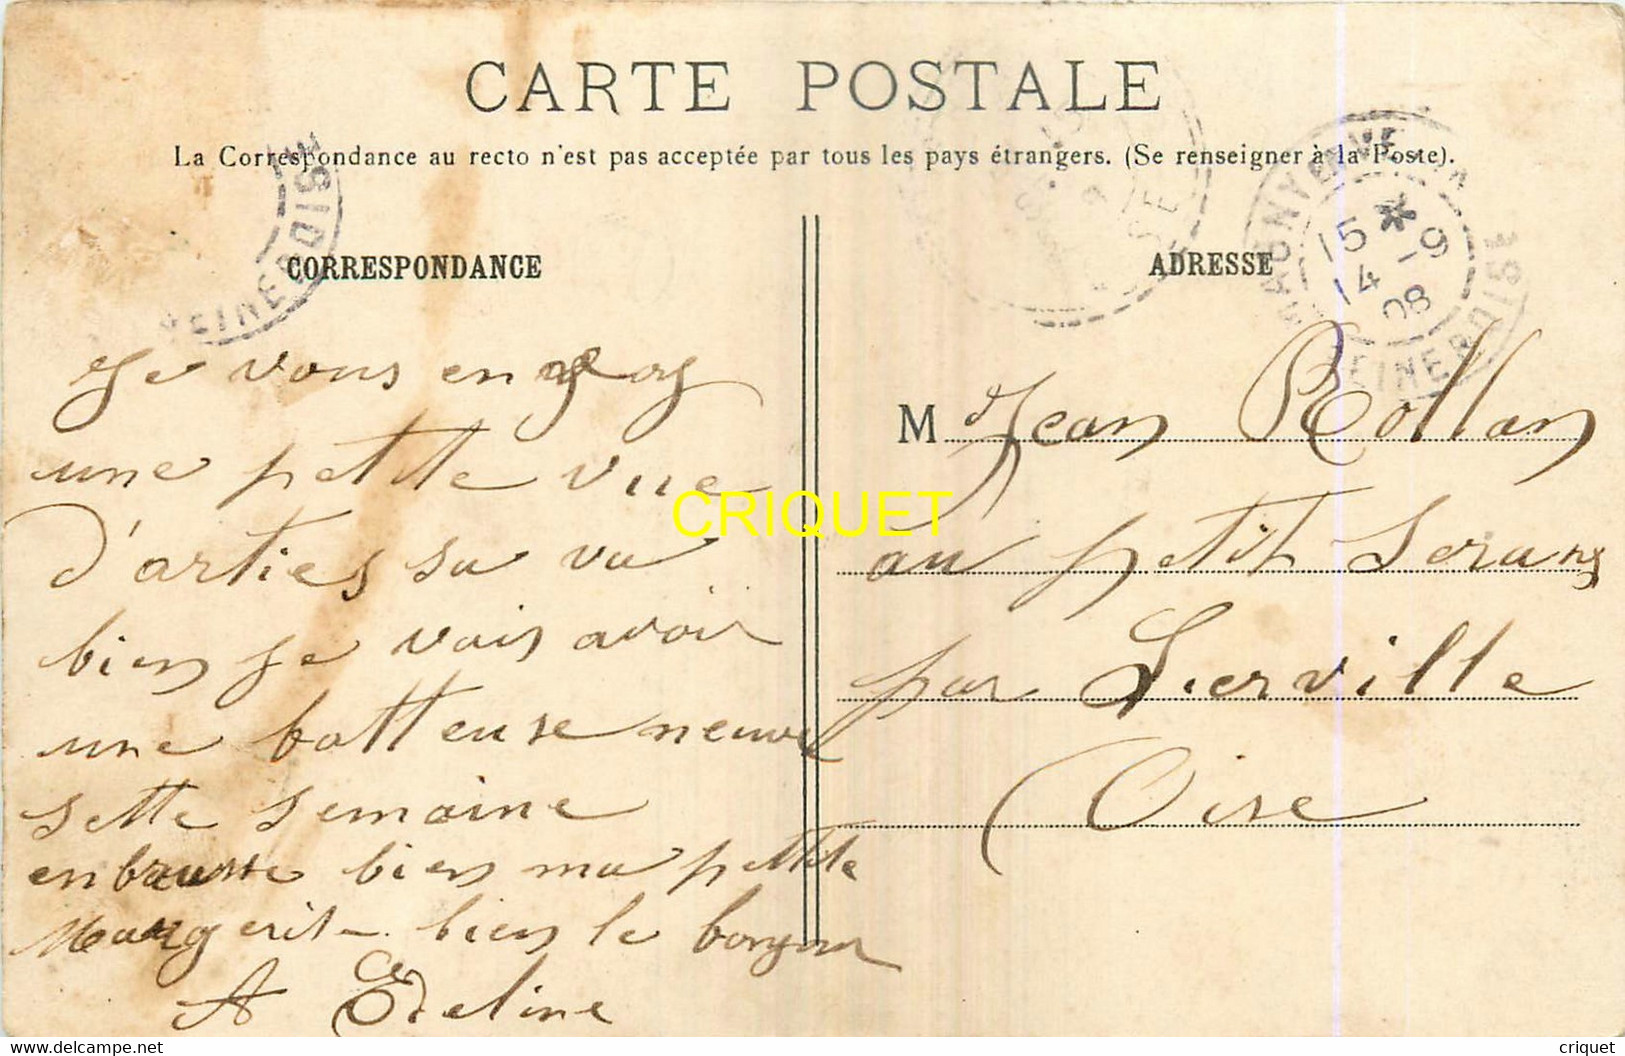 CARTE POSTALE
La Correspondance au recto n'est pas acceptée par tous les pays étrangers. (Se renseigner à la Poste).
CORRESPONDANCE
Je vous envoy
une petite vue
d'arties sa va
bien je vais avoir
une batteuse neuve
sette semaine
enbrasse bien ma petite
Margerit bien le bonjour
A Edeline
ADRESSE
M Jean Rollan
au petit Serans
par Lierville
Oise
SEINE & OISE
MAGNY EN VEXIN
15 * -9
14 08
SEINE & OISE
CRIQUET
www.delcampe.net
criquet